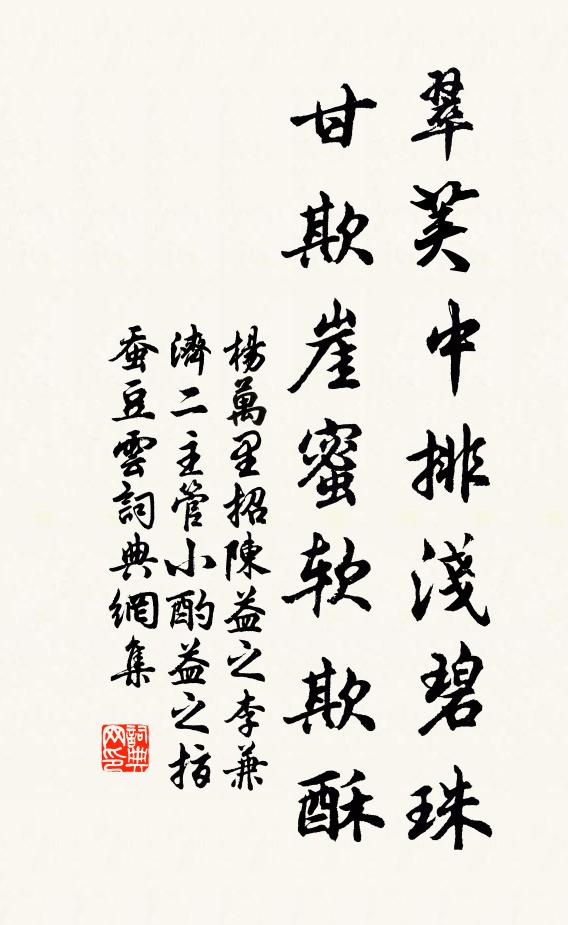 翠莢中排淺碧珠
甘欺崖蜜軟欺酥
楊萬里招陳益之李兼
濟二主管小酌益之指
蚕豆雲詞典網集
詞典网印